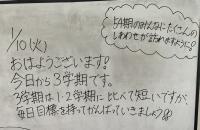 54期のみんなにたくさんの
しあわせが訪れますように!
1/10(火)
おはようございます!
今日から3学期です。
3学期は1・2学期に比べて短いですが、
毎日目標を持ってがんばっていきましょう!